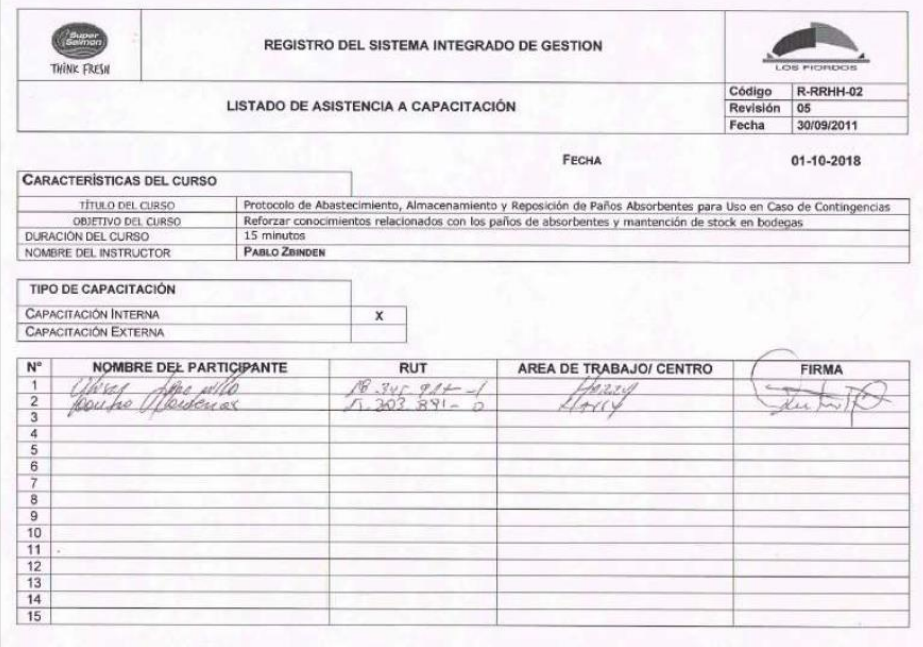 Super Salmon
THINK FRESH
REGISTRO DEL SISTEMA INTEGRADO DE GESTION
LOS FIORDOS
LISTADO DE ASISTENCIA A CAPACITACIÓN
Código R-RRHH-02
Revisión 05
Fecha 30/09/2011
FECHA 01-10-2018
CARACTERÍSTICAS DEL CURSO
TÍTULO DEL CURSO Protocolo de Abastecimiento, Almacenamiento y Reposición de Paños Absorbentes para Uso en Caso de Contingencias
OBJETIVO DEL CURSO Reforzar conocimientos relacionados con los paños de absorbentes y mantención de stock en bodegas
DURACIÓN DEL CURSO 15 minutos
NOMBRE DEL INSTRUCTOR PABLO ZBINDEN
TIPO DE CAPACITACIÓN
CAPACITACIÓN INTERNA X
CAPACITACIÓN EXTERNA
N° NOMBRE DEL PARTICIPANTE RUT AREA DE TRABAJO/ CENTRO FIRMA
1
2
3
4
5
6
7
8
9
10
11
12
13
14
15